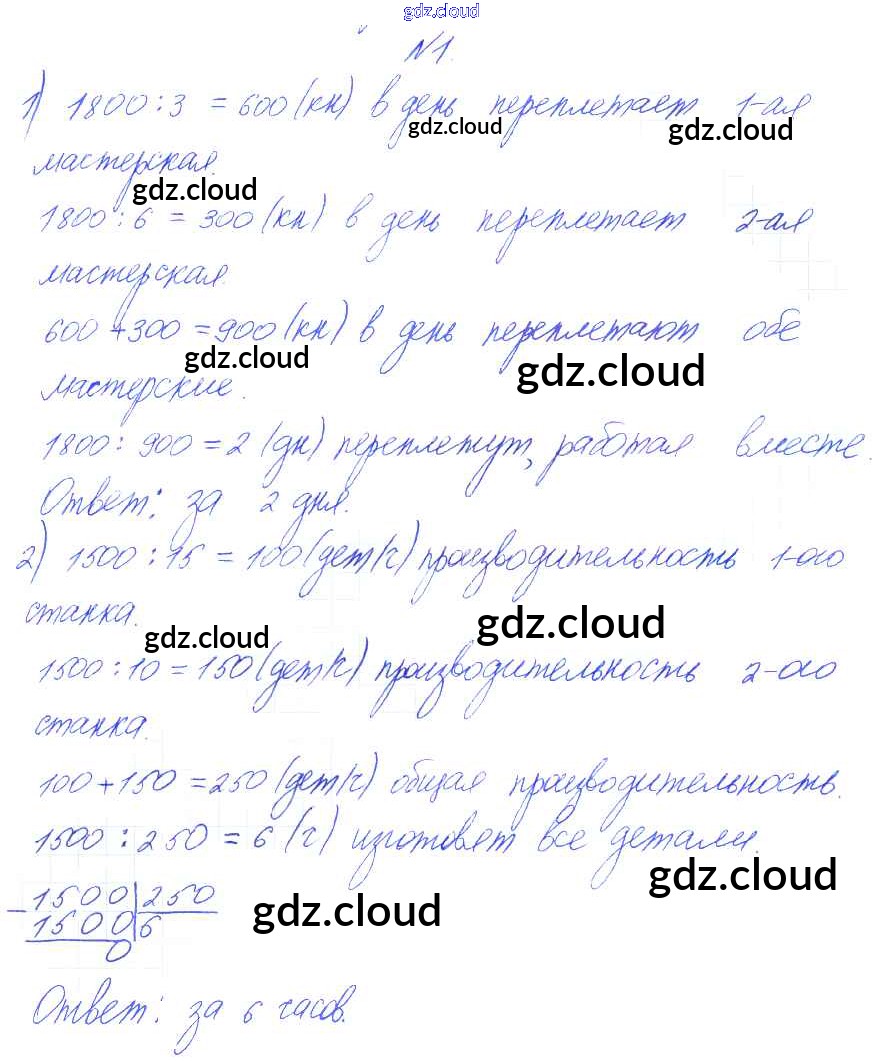 gdz.cloud
№1.
1) 1800 : 3 = 600 (кн) в день переплетает 1-ая
gdz.cloud
gdz.cloud
мастерская.
gdz.cloud
1800 : 6 = 300 (кн) в день переплетает 2-ая
мастерская.
600 + 300 = 900 (кн) в день переплетают обе
gdz.cloud
gdz.cloud
мастерские.
1800 : 900 = 2 (дн) переплетут, работая вместе.
Ответ: за 2 дня.
2) 1500 : 15 = 100 (дет/ч) производительность 1-ого
станка.
gdz.cloud
gdz.cloud
1500 : 10 = 150 (дет/ч) производительность 2-ого
станка.
100 + 150 = 250 (дет/ч) общая производительность.
1500 : 250 = 6 (ч) изготовят все детали.
gdz.cloud
− 1500 | 250
1500 | 6
gdz.cloud
0
Ответ: за 6 часов.